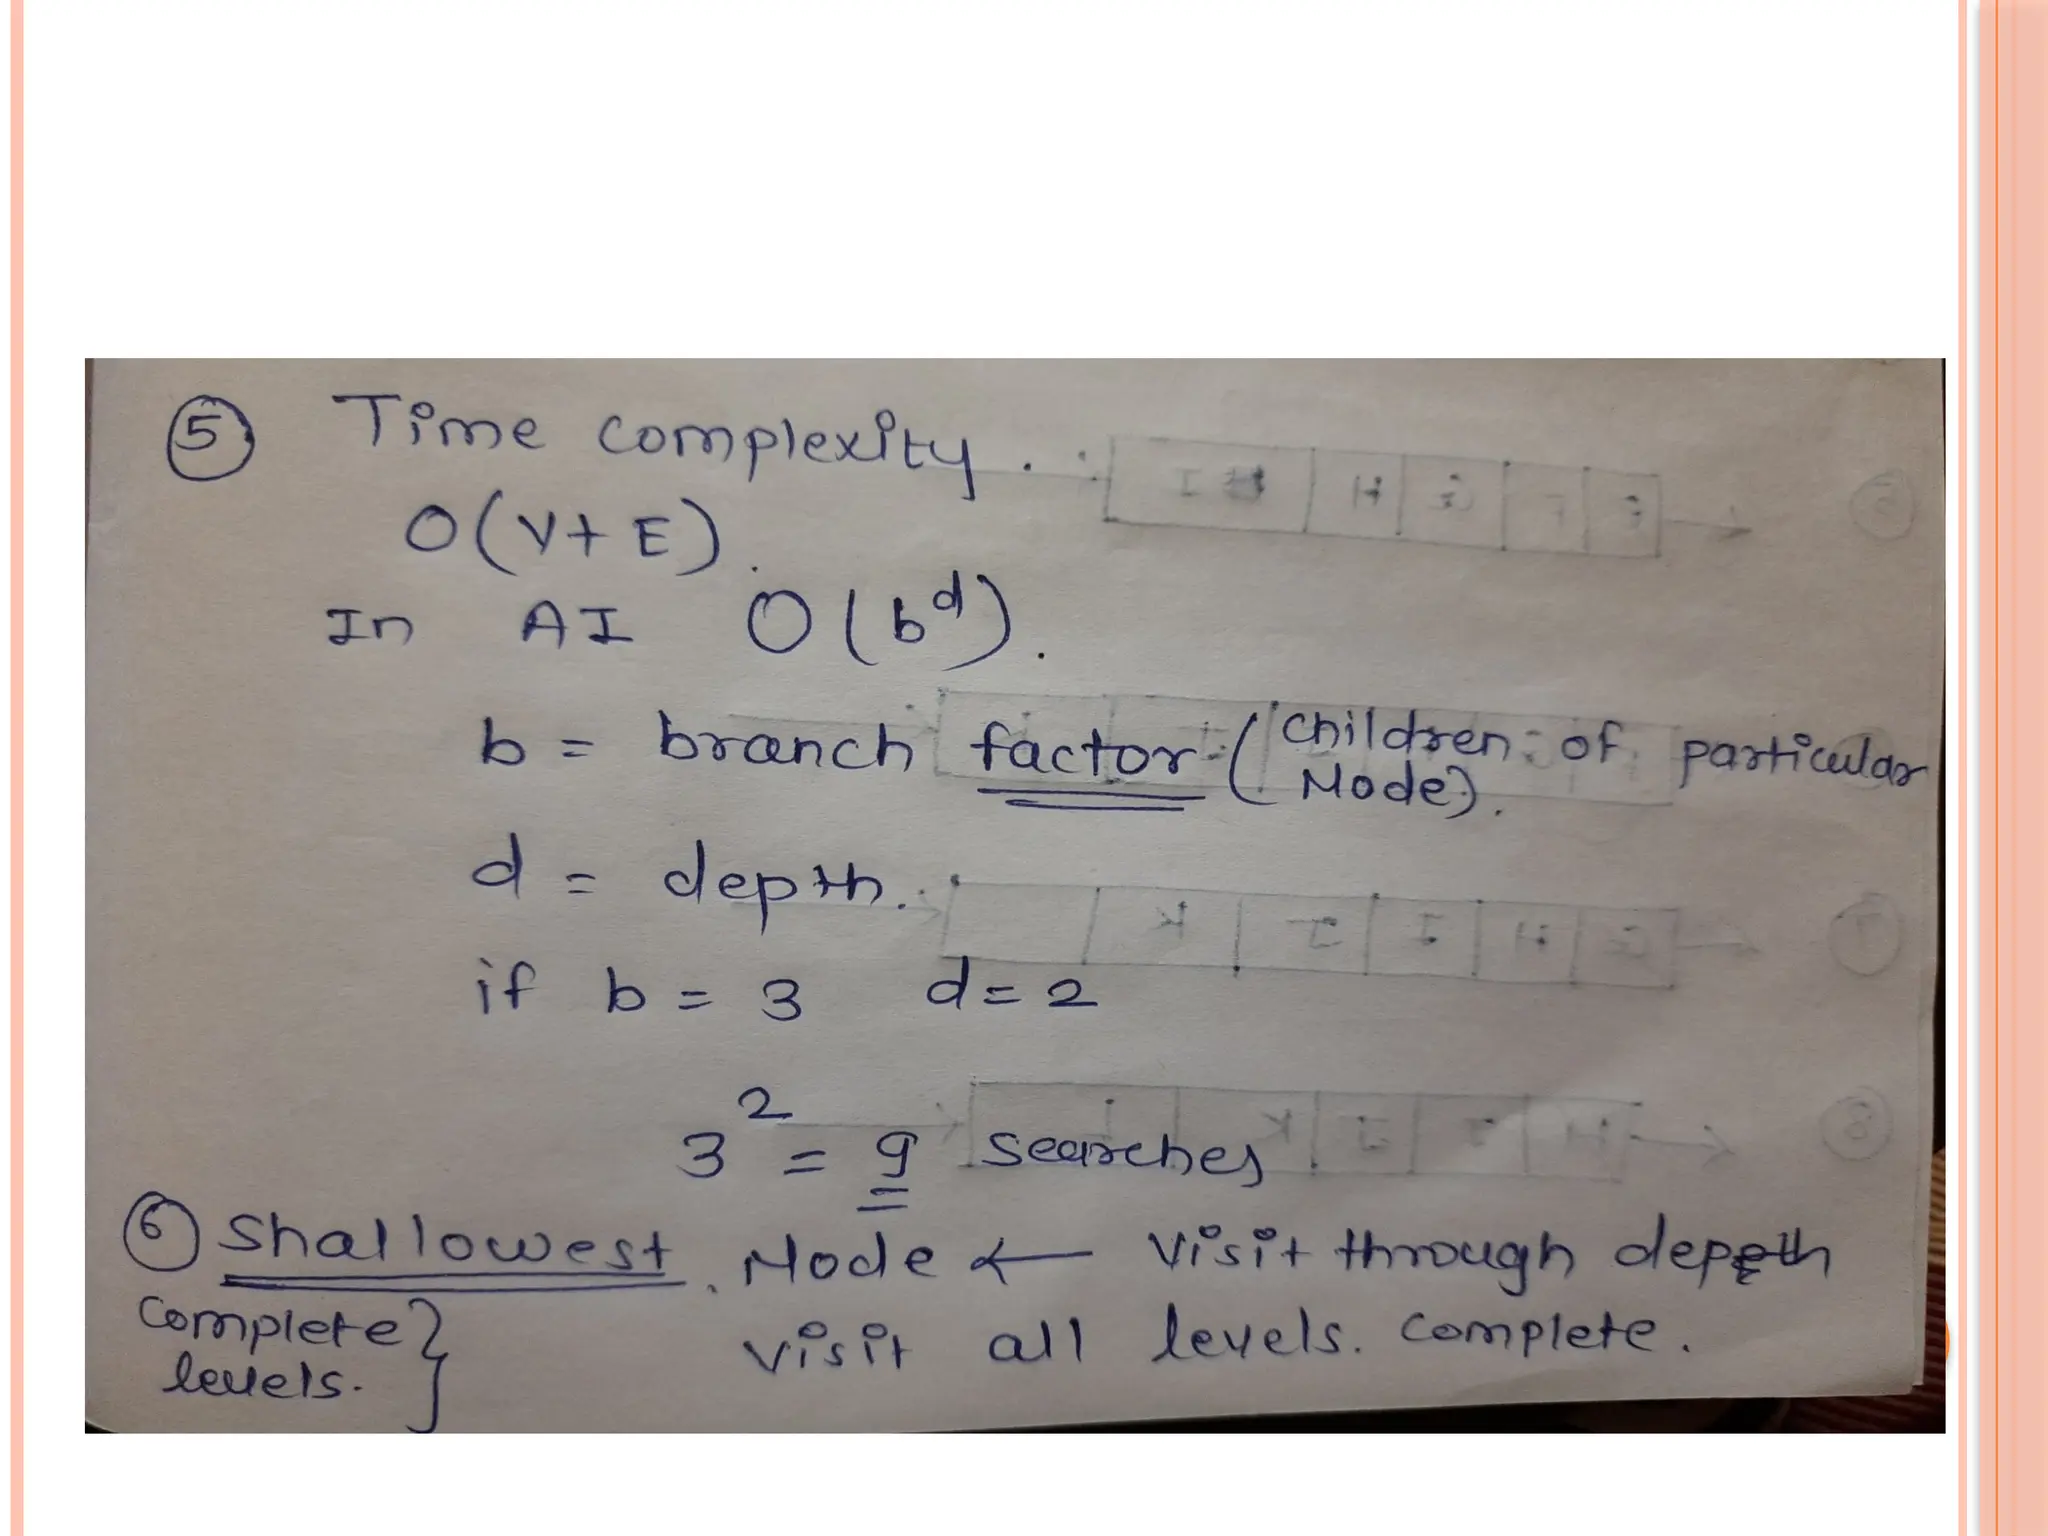 ⑤ Time complexity.
O(V+E).
In AI O(b^d).
b = branch factor (children of particular
Node).
d = depth.
if b = 3 d = 2
3^2 = 9 searches
⑥ Shallowest Node ← Visit through depth
complete levels. } visit all levels. complete.